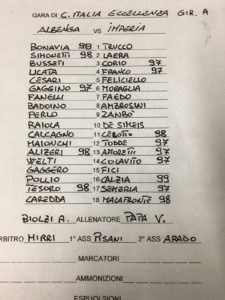 GARA DI C. ITALIA ECCELLENZA GIR. A
ALBENGA VS IMPERIA
BONAVIA 99 1 TRUCCO
SIMONETTI 98 2 LAERA
BUSSETI 3 CORIO 97
LICATA 4 FRANCO 97
CESARI 5 FELICIELLO
GAGGINO 97 6 MORAGLIA
FANELLI 7 FAEDO
BADOINO 8 AMBROSINI
PERLO 9 ZANBO'
RAIOLA 10 DE SIMEIS
CALCAGNO 11 98
MAIONCHI 12 TODDE 97
ALIZERI 98 13 97
WELTI 14 COLAVITO 97
GAGGERO 15 FICI
POLLIO 16 CALZIA 99
TESORO 98 17 SEMERIA 97
CAREDDA 18 MALAFRONTE 98
BIOLZI A. ALLENATORE PAPA V.
ARBITRO MIRRI 1° ASS PISANI 2° ASS ARADO
MARCATORI
AMMONIZIONI
ESPULSIONI